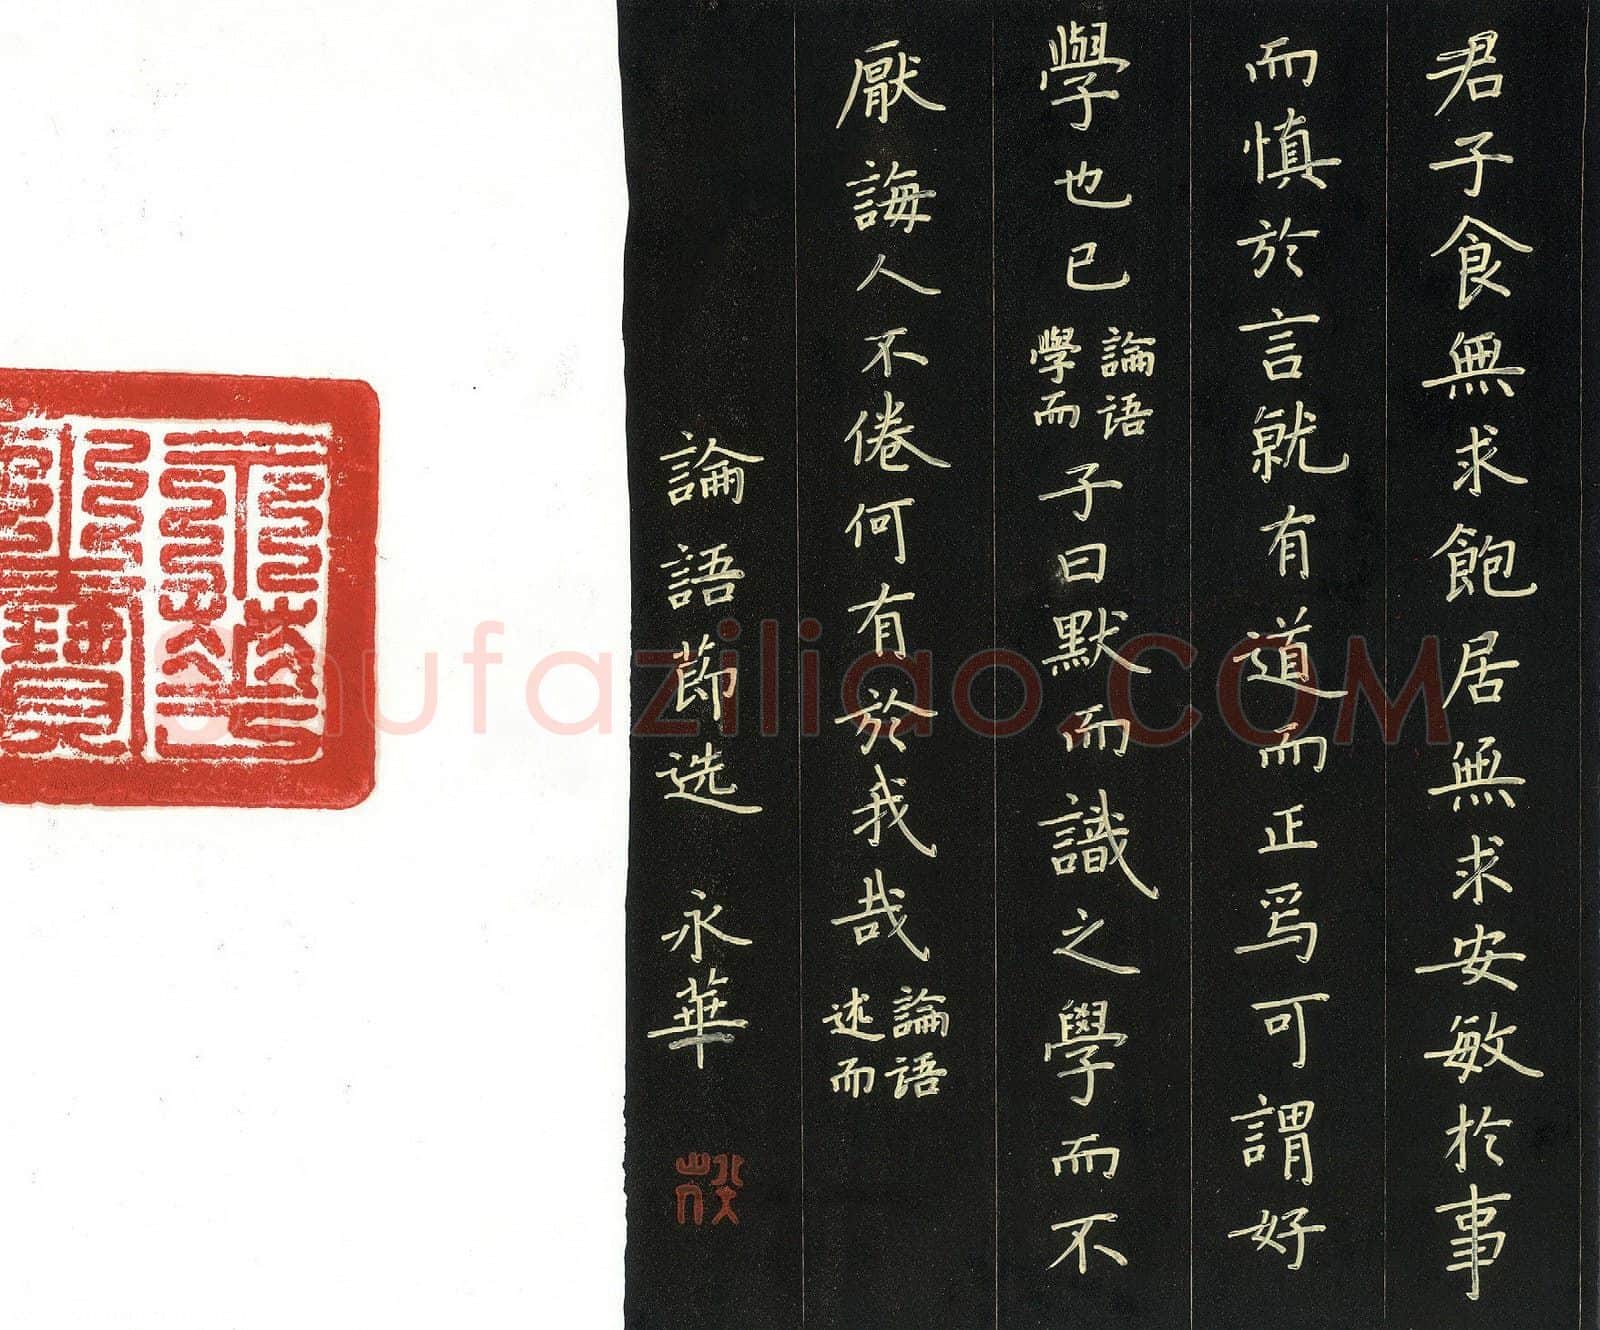 君子食無求飽居無求安敏於事
而慎於言就有道而正焉可謂好
學也已論語學而子曰默而識之學而不
厭誨人不倦何有於我哉論語述而
論語節选 永華
shufaziliao.COM